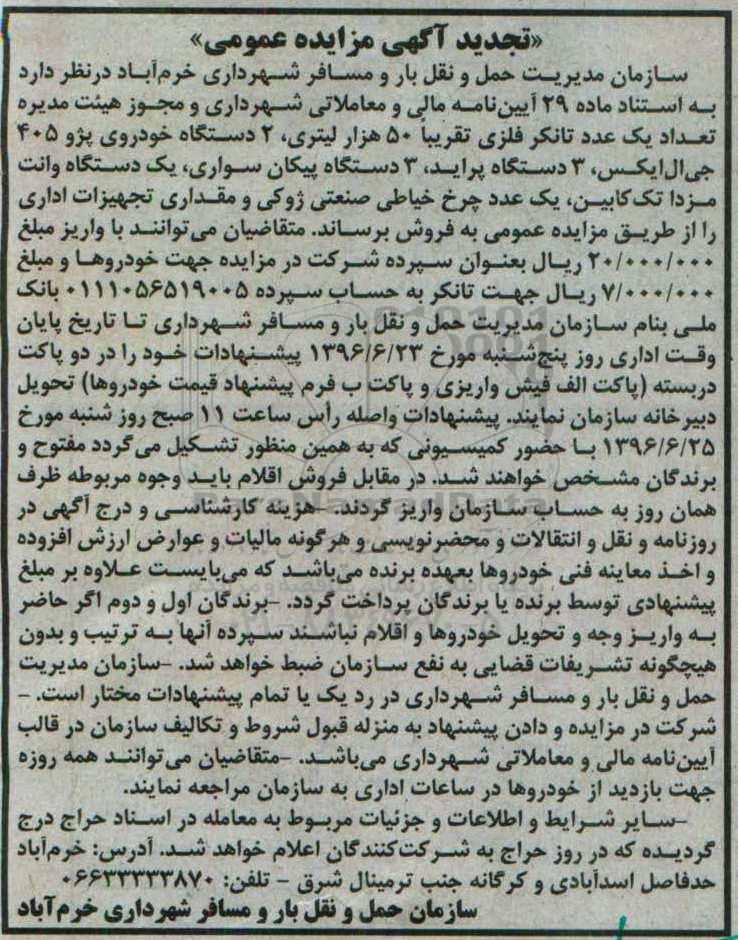 «تجدید آگهی مزایده عمومی»
سازمان مدیریت حمل و نقل بار و مسافر شهرداری خرم‌آباد درنظر دارد
به استناد ماده ۲۹ آیین‌نامه مالی و معاملاتی شهرداری و مجوز هیئت مدیره
تعداد یک عدد تانکر فلزی تقریباً ۵۰ هزار لیتری، ۲ دستگاه خودروی پژو ۴۰۵
جی‌ال‌ایکس، ۳ دستگاه پراید، ۳ دستگاه پیکان سواری، یک دستگاه وانت
مزدا تک‌کابین، یک عدد چرخ خیاطی صنعتی ژوکی و مقداری تجهیزات اداری
را از طریق مزایده عمومی به فروش برساند. متقاضیان می‌توانند با واریز مبلغ
۲۰/۰۰۰/۰۰۰ ریال بعنوان سپرده شرکت در مزایده جهت خودروها و مبلغ
۷/۰۰۰/۰۰۰ ریال جهت تانکر به حساب سپرده ۰۱۱۱۰۵۶۵۱۹۰۰۵ بانک
ملی بنام سازمان مدیریت حمل و نقل بار و مسافر شهرداری تا تاریخ پایان
وقت اداری روز پنج‌شنبه مورخ ۱۳۹۶/۶/۲۳ پیشنهادات خود را در دو پاکت
دربسته (پاکت الف فیش واریزی و پاکت ب فرم پیشنهاد قیمت خودروها) تحویل
دبیرخانه سازمان نمایند. پیشنهادات واصله رأس ساعت ۱۱ صبح روز شنبه مورخ
۱۳۹۶/۶/۲۵ با حضور کمیسیونی که به همین منظور تشکیل می‌گردد مفتوح و
برندگان مشخص خواهند شد. در مقابل فروش اقلام باید وجوه مربوطه ظرف
همان روز به حساب سازمان واریز گردند. -هزینه کارشناسی و درج آگهی در
روزنامه و نقل و انتقالات و محضرنویسی و هرگونه مالیات و عوارض ارزش افزوده
و اخذ معاینه فنی خودروها بعهده برنده می‌باشد که می‌بایست علاوه بر مبلغ
پیشنهادی توسط برنده یا برندگان پرداخت گردد. -برندگان اول و دوم اگر حاضر
به واریز وجه و تحویل خودروها و اقلام نباشند سپرده آنها به ترتیب و بدون
هیچگونه تشریفات قضایی به نفع سازمان ضبط خواهد شد. -سازمان مدیریت
حمل و نقل بار و مسافر شهرداری در رد یک یا تمام پیشنهادات مختار است. -
شرکت در مزایده و دادن پیشنهاد به منزله قبول شروط و تکالیف سازمان در قالب
آیین‌نامه مالی و معاملاتی شهرداری می‌باشد. -متقاضیان می‌توانند همه روزه
جهت بازدید از خودروها در ساعات اداری به سازمان مراجعه نمایند.
-سایر شرایط و اطلاعات و جزئیات مربوط به معامله در اسناد حراج درج
گردیده که در روز حراج به شرکت‌کنندگان اعلام خواهد شد. آدرس: خرم‌آباد
حدفاصل اسدآبادی و کرگانه جنب ترمینال شرق - تلفن: ۰۶۶۳۳۳۳۳۸۷۰
سازمان حمل و نقل بار و مسافر شهرداری خرم‌آباد